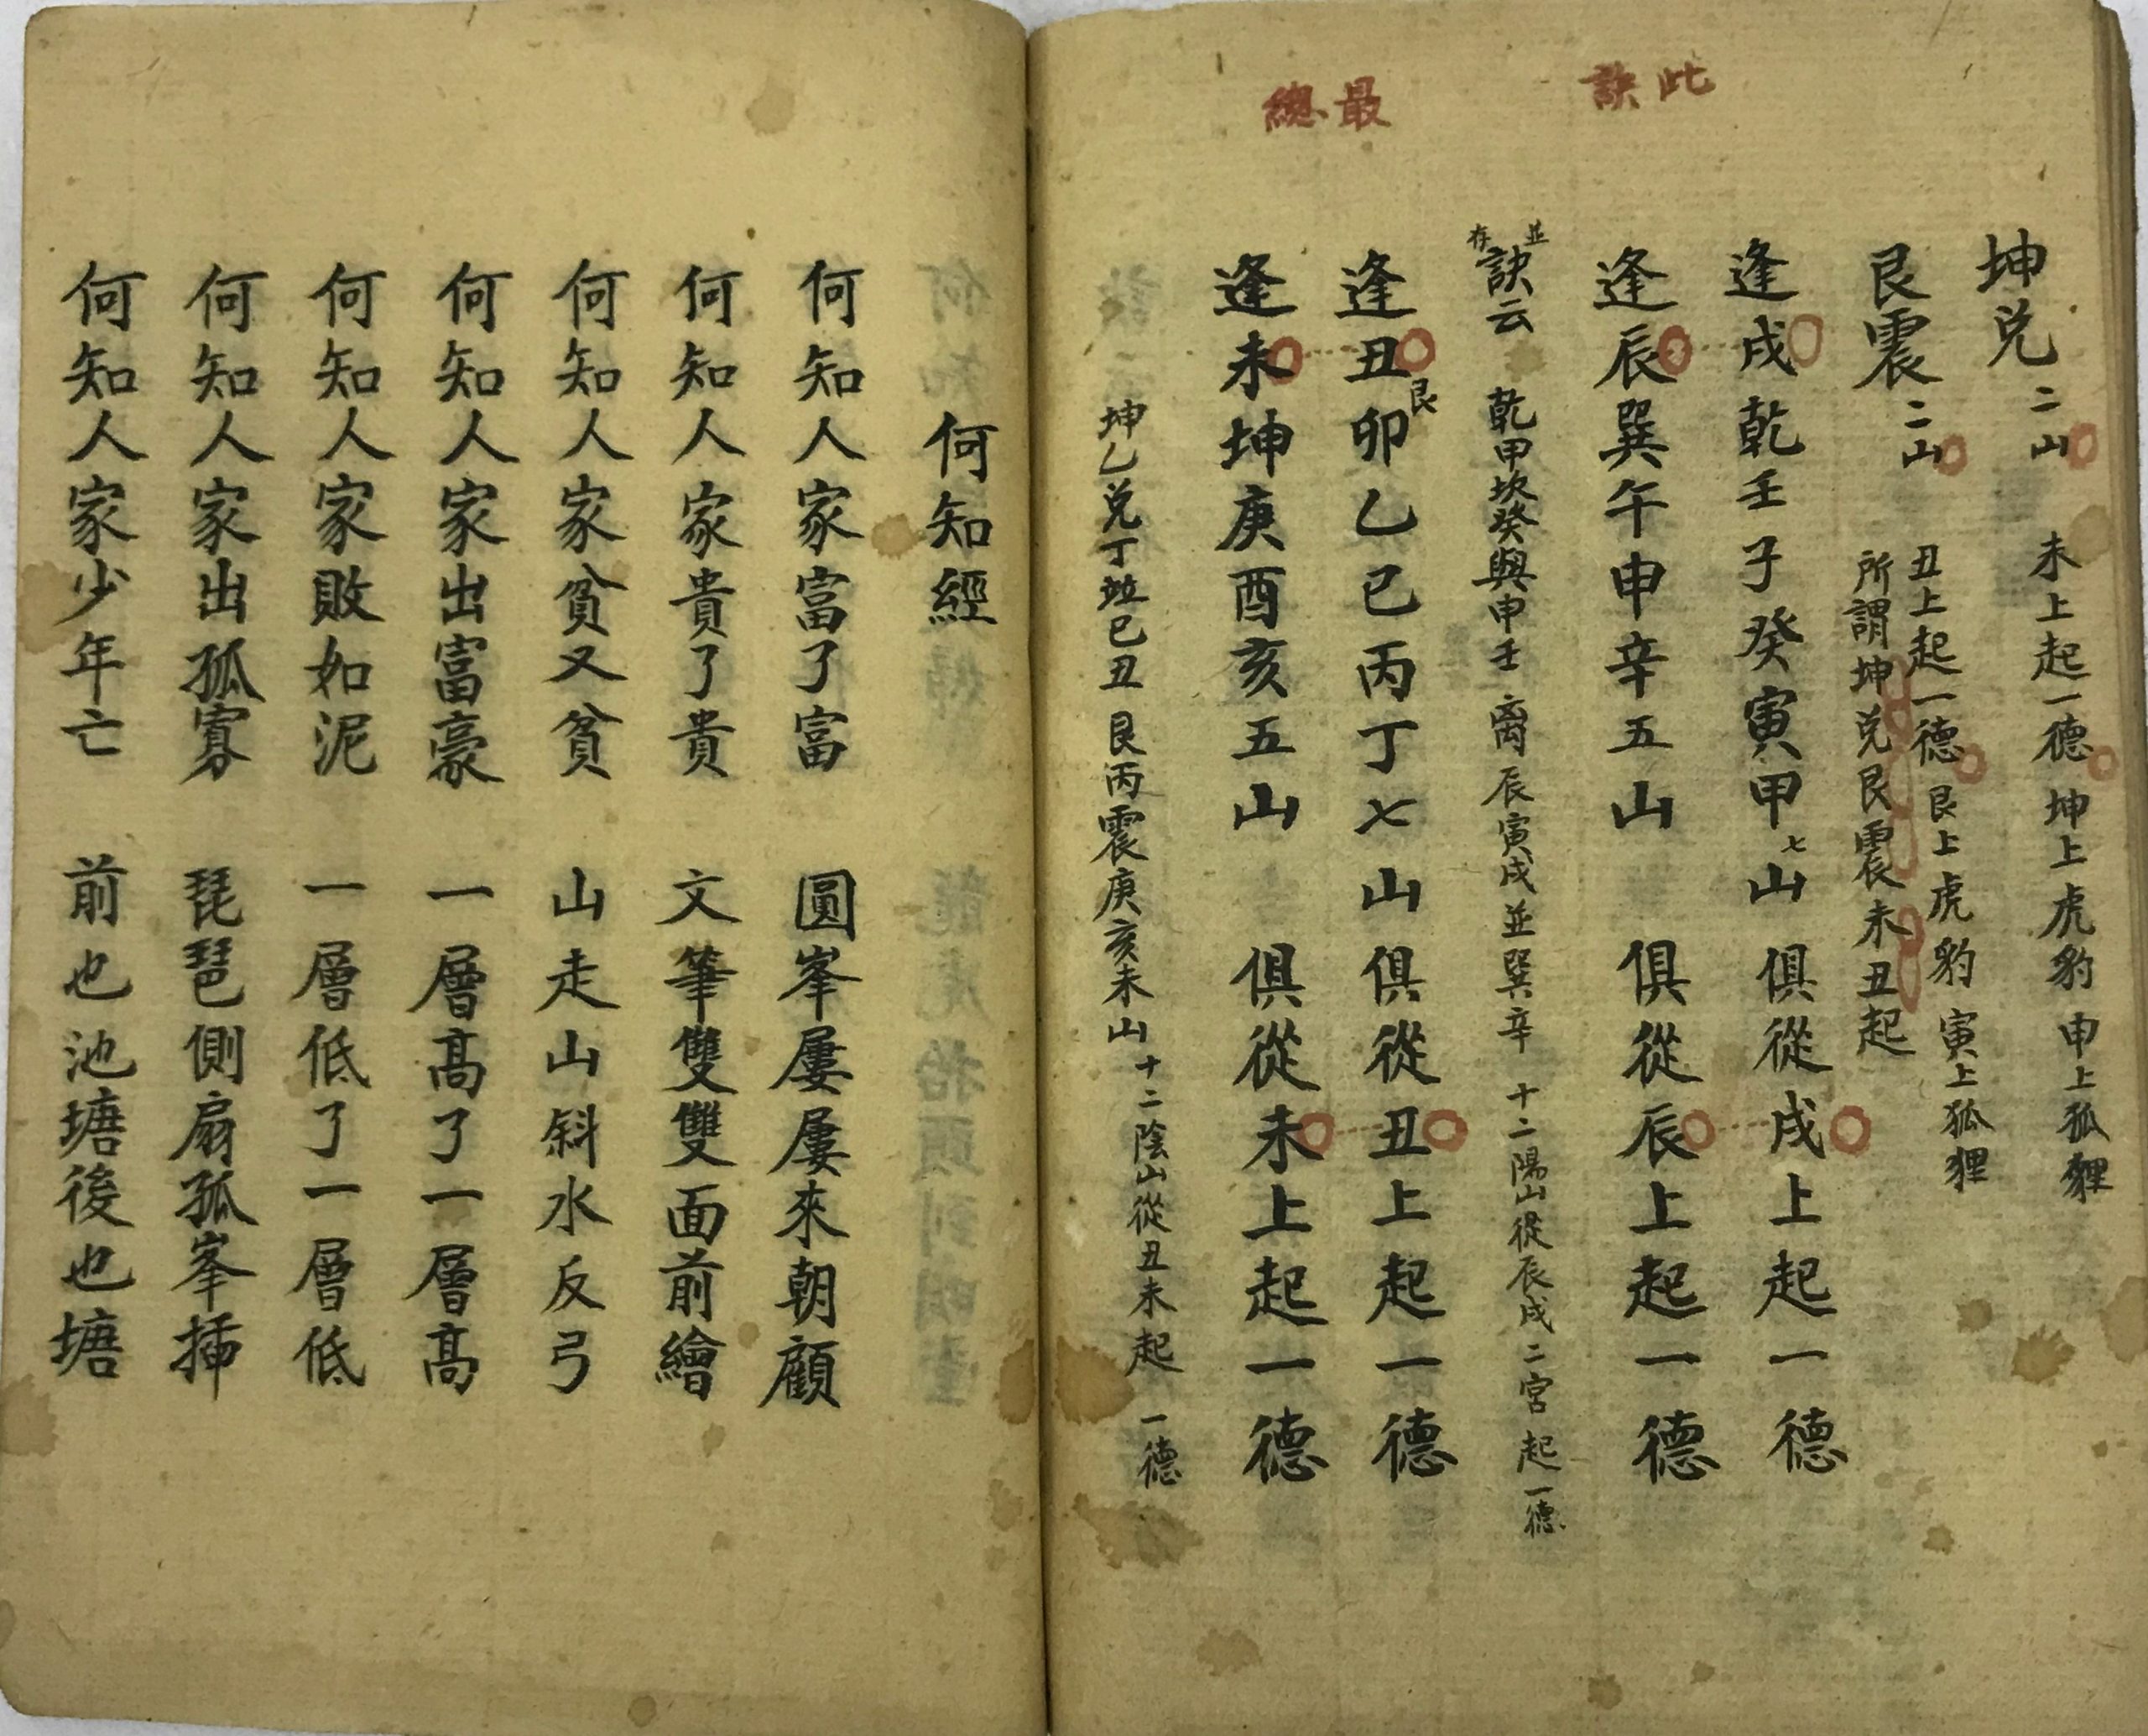 此訣
最總
坤兌二山 未上起一德 坤上虎豹 申上狐狸
艮震二山 丑上起一德 艮上虎豹 寅上狐狸
所謂坤兌艮震未丑起
逢戌乾壬子癸寅甲七山 俱從戌上起一德
逢辰巽午申辛五山 俱從辰上起一德
並存
訣云 乾甲坎癸與申壬 离辰寅戌並巽辛 十二陽山從辰戌二宮起一德
逢丑艮卯乙巳丙丁七山 俱從丑上起一德
逢未坤庚酉亥五山 俱從未上起一德
坤乙兌丁竝巳丑 艮丙震庚亥未山 十二陰山從丑未起 一德
何知經
何知人家富了富 圓峯屢屢來朝顧
何知人家貴了貴 文筆雙雙面前繪
何知人家貧又貧 山走山斜水反弓
何知人家出富豪 一層高了一層高
何知人家敗如泥 一層低了一層低
何知人家出孤寡 琵琶側扇孤峯插
何知人家少年亡 前也池塘後也塘